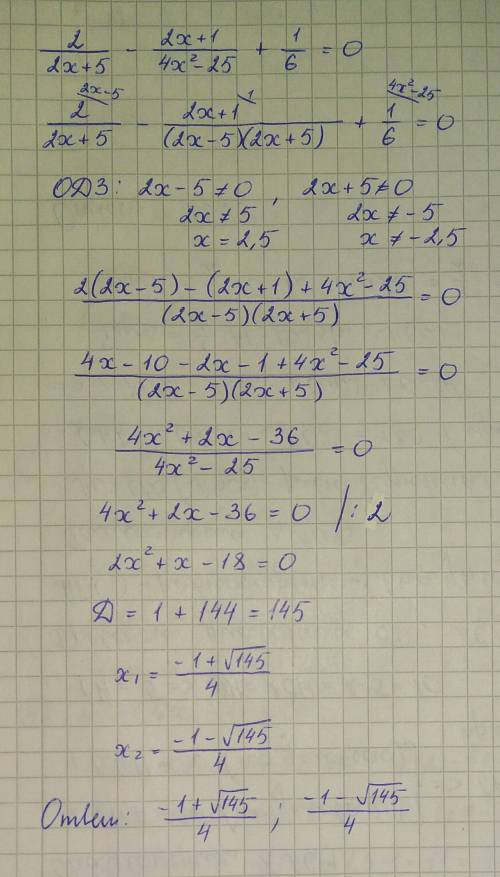 2/(2x+5) - (2x+1)/(4x²-25) + 1/6 = 0
2/(2x+5) (2x-5) - (2x+1)/((2x-5)(2x+5)) (1) + 1/6 (4x²-25) = 0
ОДЗ: 2x-5≠0, 2x+5≠0
2x≠5 2x≠-5
x=2,5 x≠-2,5
(2(2x-5)-(2x+1)+4x²-25)/((2x-5)(2x+5)) = 0
(4x-10-2x-1+4x²-25)/((2x-5)(2x+5)) = 0
(4x²+2x-36)/(4x²-25) = 0
4x²+2x-36=0 /:2
2x²+x-18=0
Д=1+144=145
x₁=(-1+√145)/4
x₂=(-1-√145)/4
Ответ: (-1+√145)/4 ; (-1-√145)/4